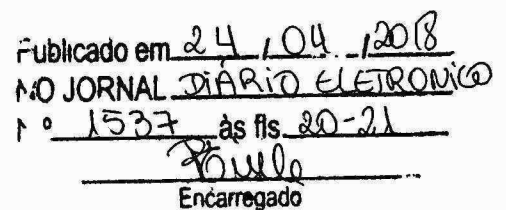 Publicado em 24 / 04 / 2018
NO JORNAL DIÁRIO ELETRONICO
N º 1537 às fls. 20-21
Encarregado